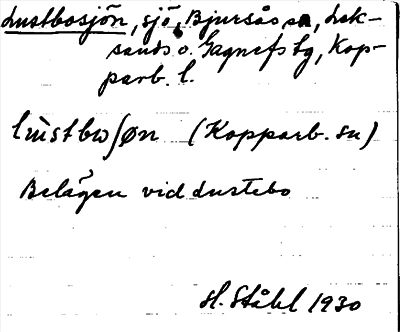 Lustbosjön, sjö, Bjursås sn, Lek-
sands o. Gagnefs tg, Kop-
parb. l.
(Kopparb. sn)
Belägen vid Lustebo
H. Ståhl 1930